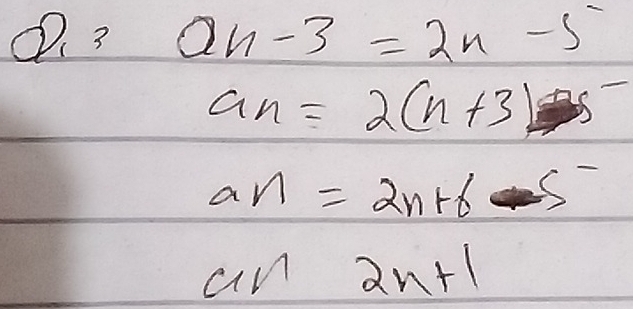 Q.3 an-3 = 2n - 5
an = 2(n+3) - 5
an = 2n+6 - 5
an 2n+1